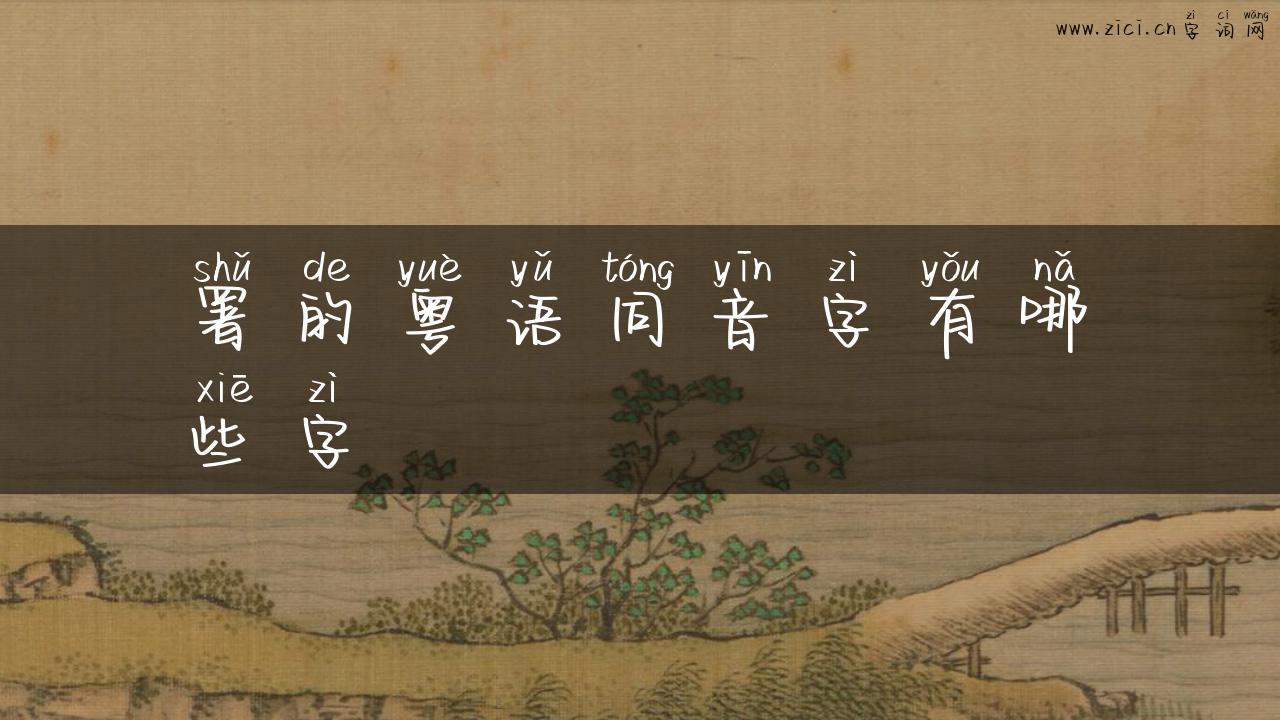 zì cí wǎng
www.zici.cn字词网
shǔ de yuè yǔ tóng yīn zì yǒu nǎ
署的粤语同音字有哪
xiē zì
些字